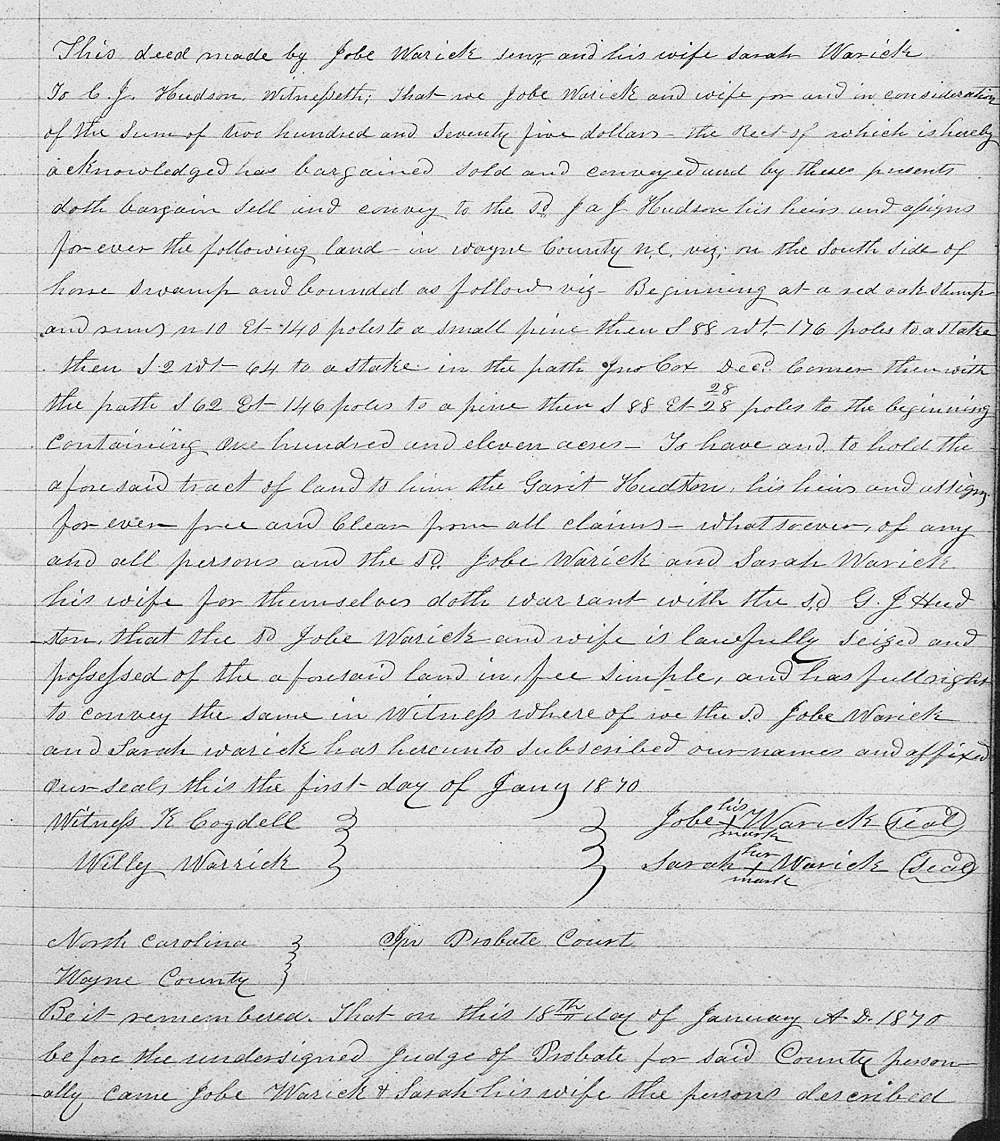 This deed made by Jobe Warick senr and his wife Sarah Warick
To C. J. Hudson. Witnesseth; That we Jobe Warick and wife for and in consideration
of the Sum of two hundred and Seventy five dollars - the Rect of which is hereby
acknowledged has bargained sold and conveyed and by these presents
doth bargain Sell and convey to the sd J a J Hudson his heirs and assigns
for ever the following land - in wayne County n.c. viz; on the South side of
horse swamp and bounded as follow viz - Beginning at a red oak stump
and runs n 10 Et - 140 poles to a small pine then S 88 wt. 176 poles to a stake
then S 2 wt 64 to a stake in the path Jno Cox Decd. Corner then with
the path S 62 Et - 146 poles to a pine then S 88 Et 28 28 poles to the beginning
containing one hundred and eleven acres - To have and to hold the
afore said tract of land to him the Garit Hudton, his heirs and assigns
for ever free and Clear from all claims - what so ever, of any
and all persons and the sd. Jobe Warick and Sarah Warick
his wife for themselves doth warrant with the sd G. J Hud
ton, that the sd Jobe Warick and wife is lawfully Seized and
possessed of the aforesaid land in, fee simple, and has full right
to convey the same in Witness where of we the sd Jobe Warick
and Sarah warick has hereunto subscribed our names and affixed
our seals this the first day of Jany 1870
Witness K Cogdell Jobe his X mark Warick (seal)
Willy Warrick Sarah her X mark Warick (seal)
North Carolina In Probate Court
Wayne County
Be it remembered. That on this 18th day of January A D. 1870
before the undersigned Judge of Probate for said County person-
ally came Jobe Warick & Sarah his wife the persons described